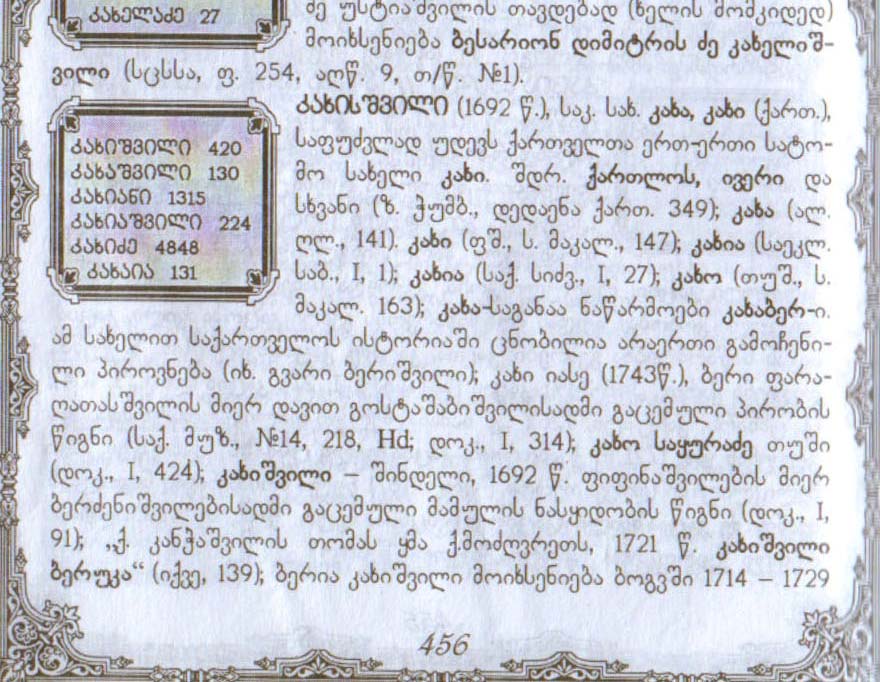 კახელაძე 27
ძე უსტიაშვილის თავდებად (ხელის მომკიდედ)
მოიხსენიება ბესარიონ დიმიტრის ძე კახელიშ-
ვილი (სცსსა, ფ. 254, აღწ. 9, თ/წ. №1).
კახიშვილი 420
კახაშვილი 130
კახიანი 1315
კახიაშვილი 224
კახიძე 4848
კახაია 131
კახისშვილი (1692 წ.), საკ. სახ. კახა, კახი (ქართ.),
საფუძვლად უდევს ქართველთა ერთ-ერთი სატო-
მო სახელი კახი. შდრ. ქართლოს, ივერი და
სხვანი (ზ. ჭუმბ., დედაენა ქართ. 349); კახა (ალ.
ღლ., 141). კახი (ფშ., ს. მაკალ., 147); კახია (საეკლ.
საბ., I, 1); კახია (საქ. სიძვ., I, 27); კახო (თუშ., ს.
მაკალ. 163); კახა-საგანაა ნაწარმოები კახაბერ-ი.
ამ სახელით საქართველოს ისტორიაში ცნობილია არაერთი გამოჩენი-
ლი პიროვნება (იხ. გვარი ბერიშვილი); კახი იასე (1743წ.), ბერი ფარა-
ღათასშვილის მიერ დავით გოსტაშაბიშვილისადმი გაცემული პირობის
წიგნი (საქ. მუზ., №14, 218, Hd; დოკ., I, 314); კახო საყურაძე თუში
(დოკ., I, 424); კახიშვილი – შინდელი, 1692 წ. ფიფინაშვილების მიერ
ბერძენიშვილებისადმი გაცემული მამულის ნასყიდობის წიგნი (დოკ., I,
91); „ქ. კანჭაშვილის თომას ყმა ქ.მოძღვრეთს, 1721 წ. კახიშვილი
ბერუკა“ (იქვე, 139); ბერია კახიშვილი მოიხსენიება ბოგვში 1714 – 1729
456